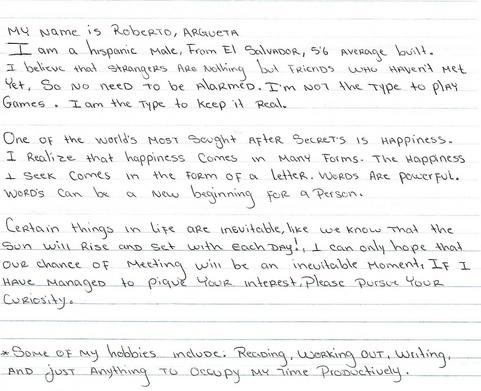 My Name is Roberto, Argueta
I am a hispanic Male, From El Salvador, 5'6 average built.
I believe that strangers are Nothing but Friends who haven't Met
Yet, So No Need To be Alarmed. I'm Not the Type to play
Games. I am the Type to keep it Real.
One of the World's Most Sought After Secret's is Happiness.
I Realize that happiness Comes in Many Forms. The Happiness
I Seek Comes in the Form of a letter. Words Are Powerful.
Word's Can be a New beginning For a Person.
Certain things in Life are inevitable, like we know That the
Sun will Rise and Set with each Day!, I can only hope that
our chance of Meeting will be an inevitable Moment, If I
Have Managed to pique Your interest, Please Pursue Your
Curiosity.
*Some of My hobbies include: Reading, Working Out, Writing,
And just Anything To Occupy My Time Productively.